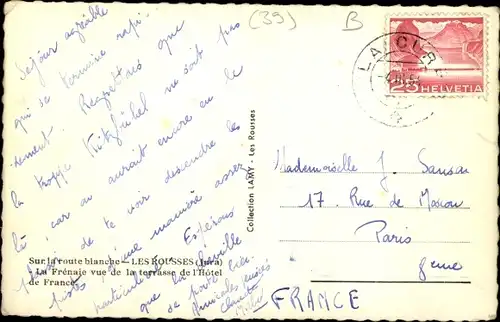 (39)
B
Séjour agréable
qui se termine rapi-
dement. Regrettons que
la troupe Kitzbühel ne soit pas
là car on aurait encore eu le
de te voir descendre les
pistes d'une manière assez
particulière. Espérons
que la
se porte bien.
Amicales pensées
Collection LAMY - Les Rousses
LA CURE
25 HELVETIA
Mademoiselle J. Sanson
17. Rue de
Paris
8eme
FRANCE
Sur la route blanche — LES ROUSSES (Jura)
La Frénaie vue de la terrasse de l'Hôtel
de France